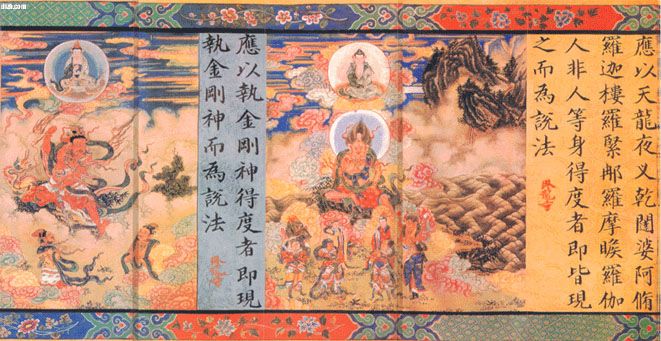 應以天龍夜叉乾闥婆阿脩
羅迦樓羅緊那羅摩睺羅伽
人非人等身得度者即皆現
之而為說法
應以執金剛神得度者即現
執金剛神而為說法